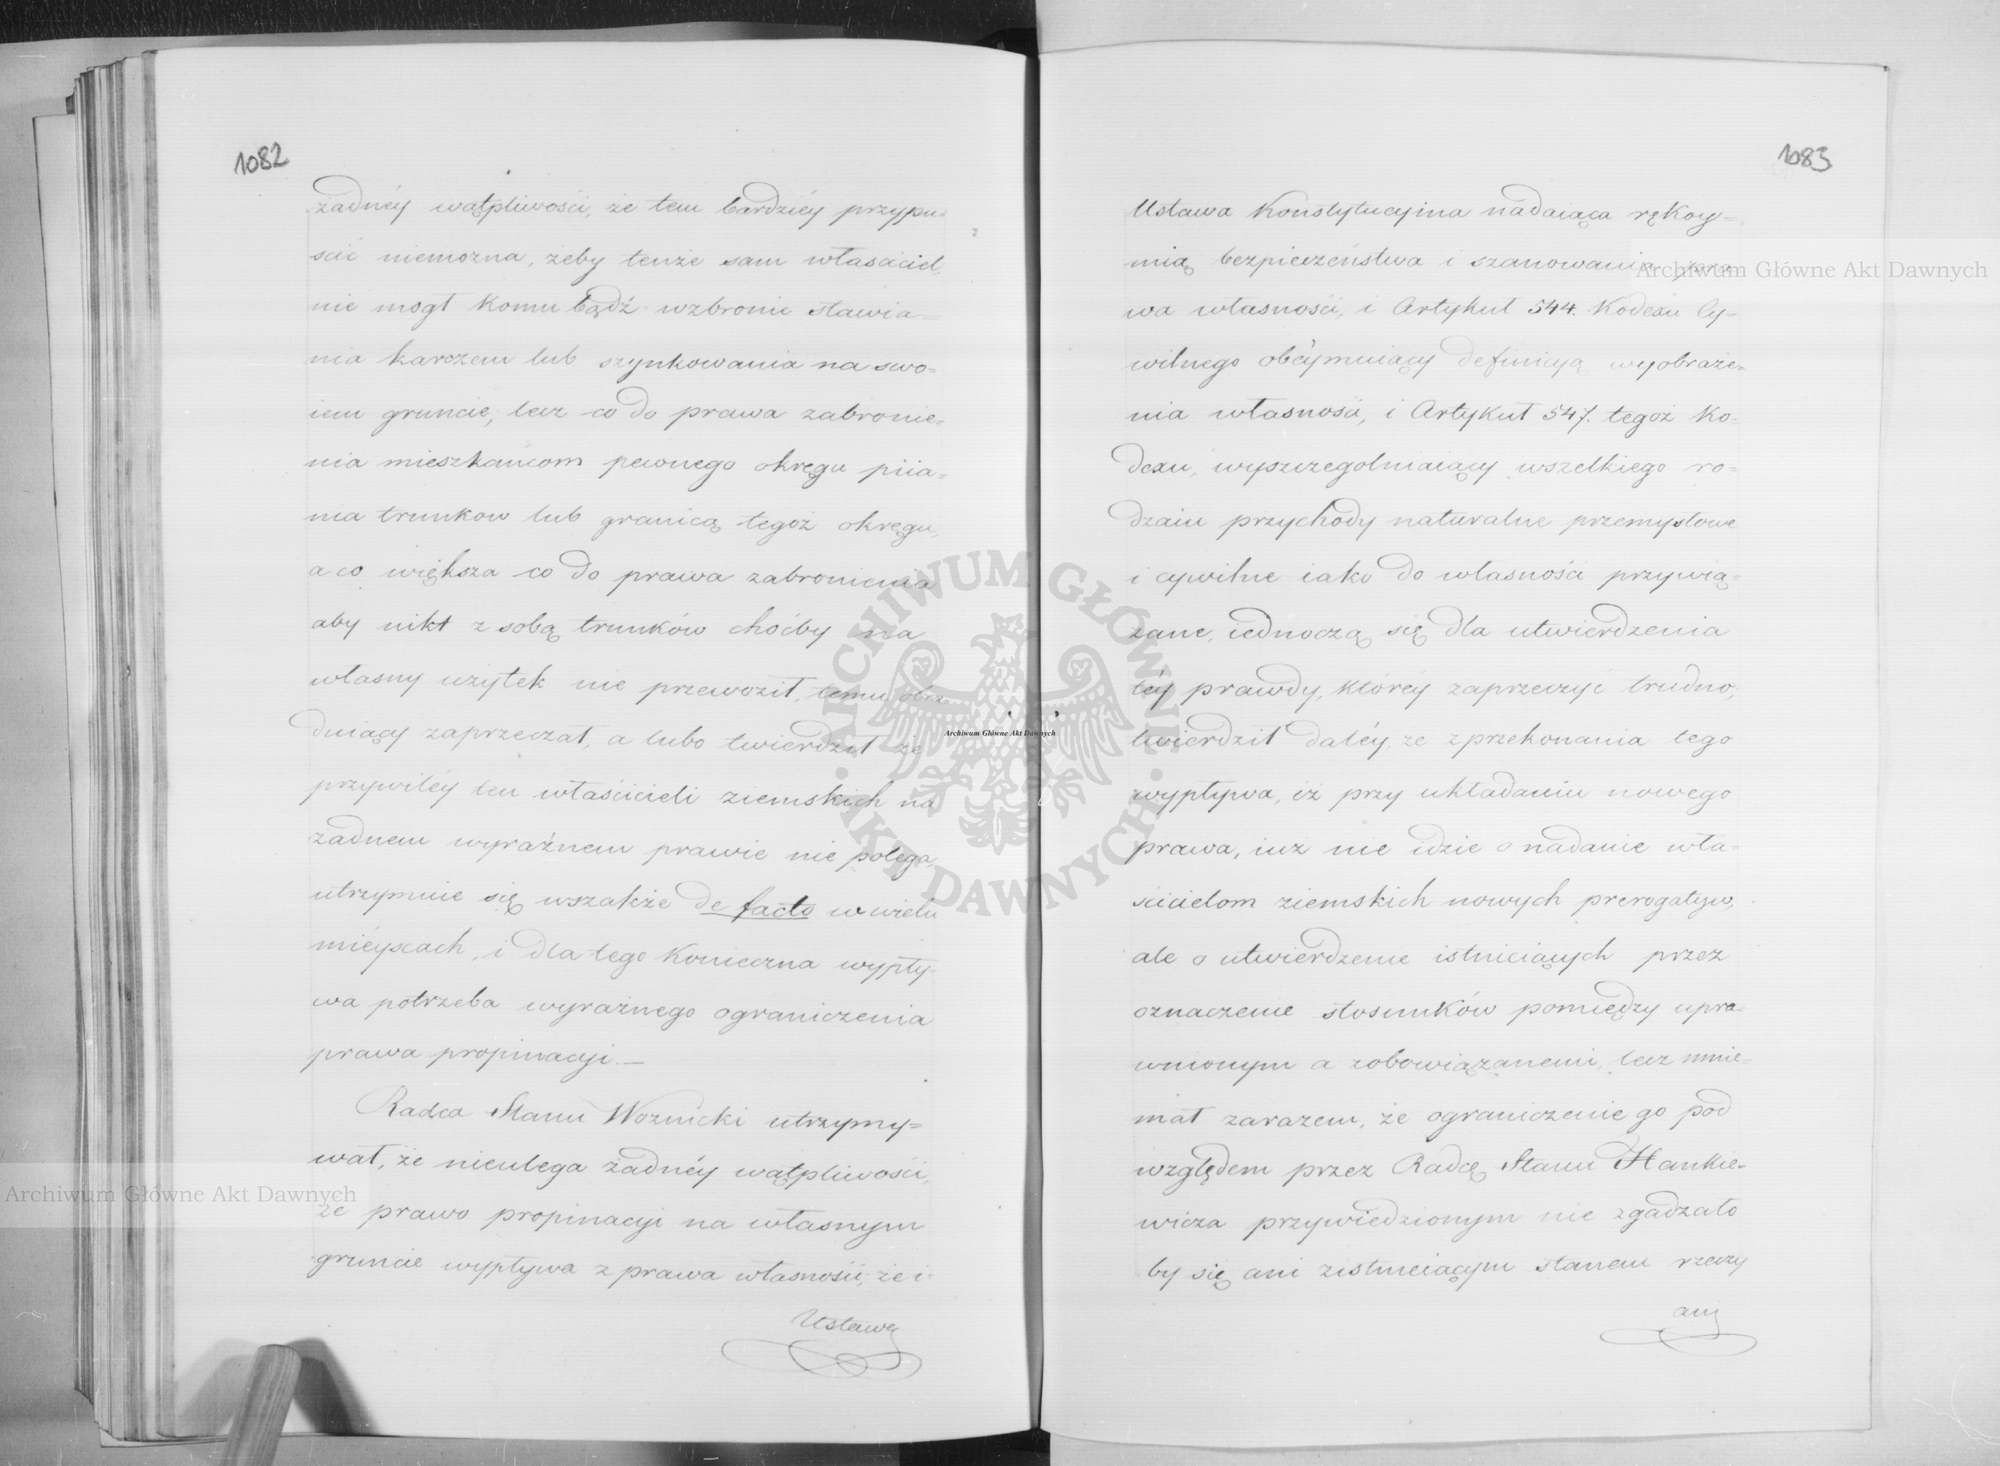 1082
żadnéy wątpliwości, że tem bardziéy przypu-
ścić niemożna, żeby tenże sam właściciel,
nie mogł komu bądź wzbronić stawia=
nia karczem lub szynkowania na swo=
iem gruncie; lecz co do prawa zabronie=
nia mieszkańcom pewnego okręgu piia=
nia trunkow lub granicą tegoż okręgu,
a co większa co do prawa zabronienia
aby nikt z sobą trunków choćby na
własny użytek nie przewoził, temu
dniący zaprzeczał, a lubo twierdził że
przywiléy ten właścicieli ziemskich na
żadnem wyraźnem prawie nie polega,
utrzymuie się wszakże de facto w wielu
mieyscach, i dla tego konieczna wypły-
wa potrzeba wyraźnego ograniczenia
prawa propinacyi. —
Radca Stanu Woznicki utrzymy=
wał, że nieulega żadnéy wątpliwości,
że prawo propinacyi na własnym
gruncie wypływa z prawa własności, że i
Ustawa
1083
Ustawa Konstytucyjna nadaiąca rękoy=
mią bezpieczeństwa i szanowania pra
wa własności, i Artykuł 544. Kodexu Cy-
wilnego obéymuiący definicyą wyobraże=
nia własności, i Artykuł 547. tegoż Ko-
dexu, wyszczegolniaiący wszelkiego ro=
dzaiu przychody naturalne przemysłowe
i cywilne iako do własności przywią=
zane, iednoczą się dla utwierdzenia
téy prawdy, któréy zaprzeczyć trudno;
twierdził daléy, że z przekonania tego
wypływa, iż przy układaniu nowego
prawa, iuż nie idzie o nadanie wła-
ścicielom ziemskich nowych prerogatyw,
ale o utwierdzenie istnieiących przez
oznaczenie stosunków pomiędzy upra-
wnionym a zobowiązanemi, lecz mnie-
mał zarazem, że ograniczenie go pod
względem przez Radcę Stanu Hankie-
wicza przywiedzionym nie zgadzało
by się ani z istnieiącym stanem rzeczy
ani
Archiwum Główne Akt Dawnych
Archiwum Główne Akt Dawnych
Archiwum Główne Akt Dawnych
ARCHIWUM GŁÓWNE
AKT DAWNYCH